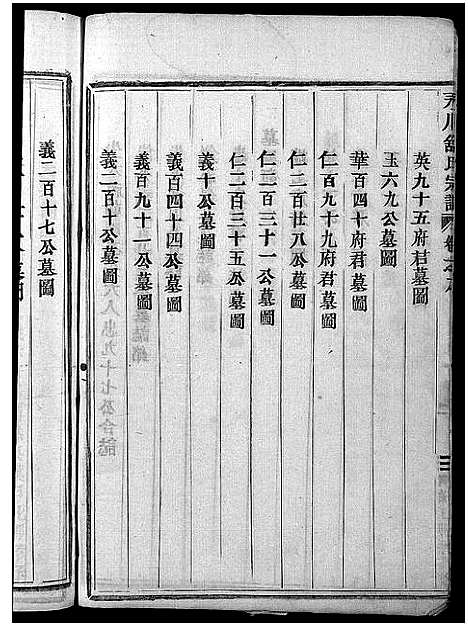 永川舒氏宗譜
英九十五府君墓圖
玉六九公墓圖
華百六十府君墓圖
仁百九十九府君墓圖
仁二百廿八公墓圖
仁二百三十一公墓圖
仁二百三十五公墓圖
義十公墓圖
義百四十四公墓圖
義百九十一公墓圖
義二百十公墓圖
義二百十七公墓圖